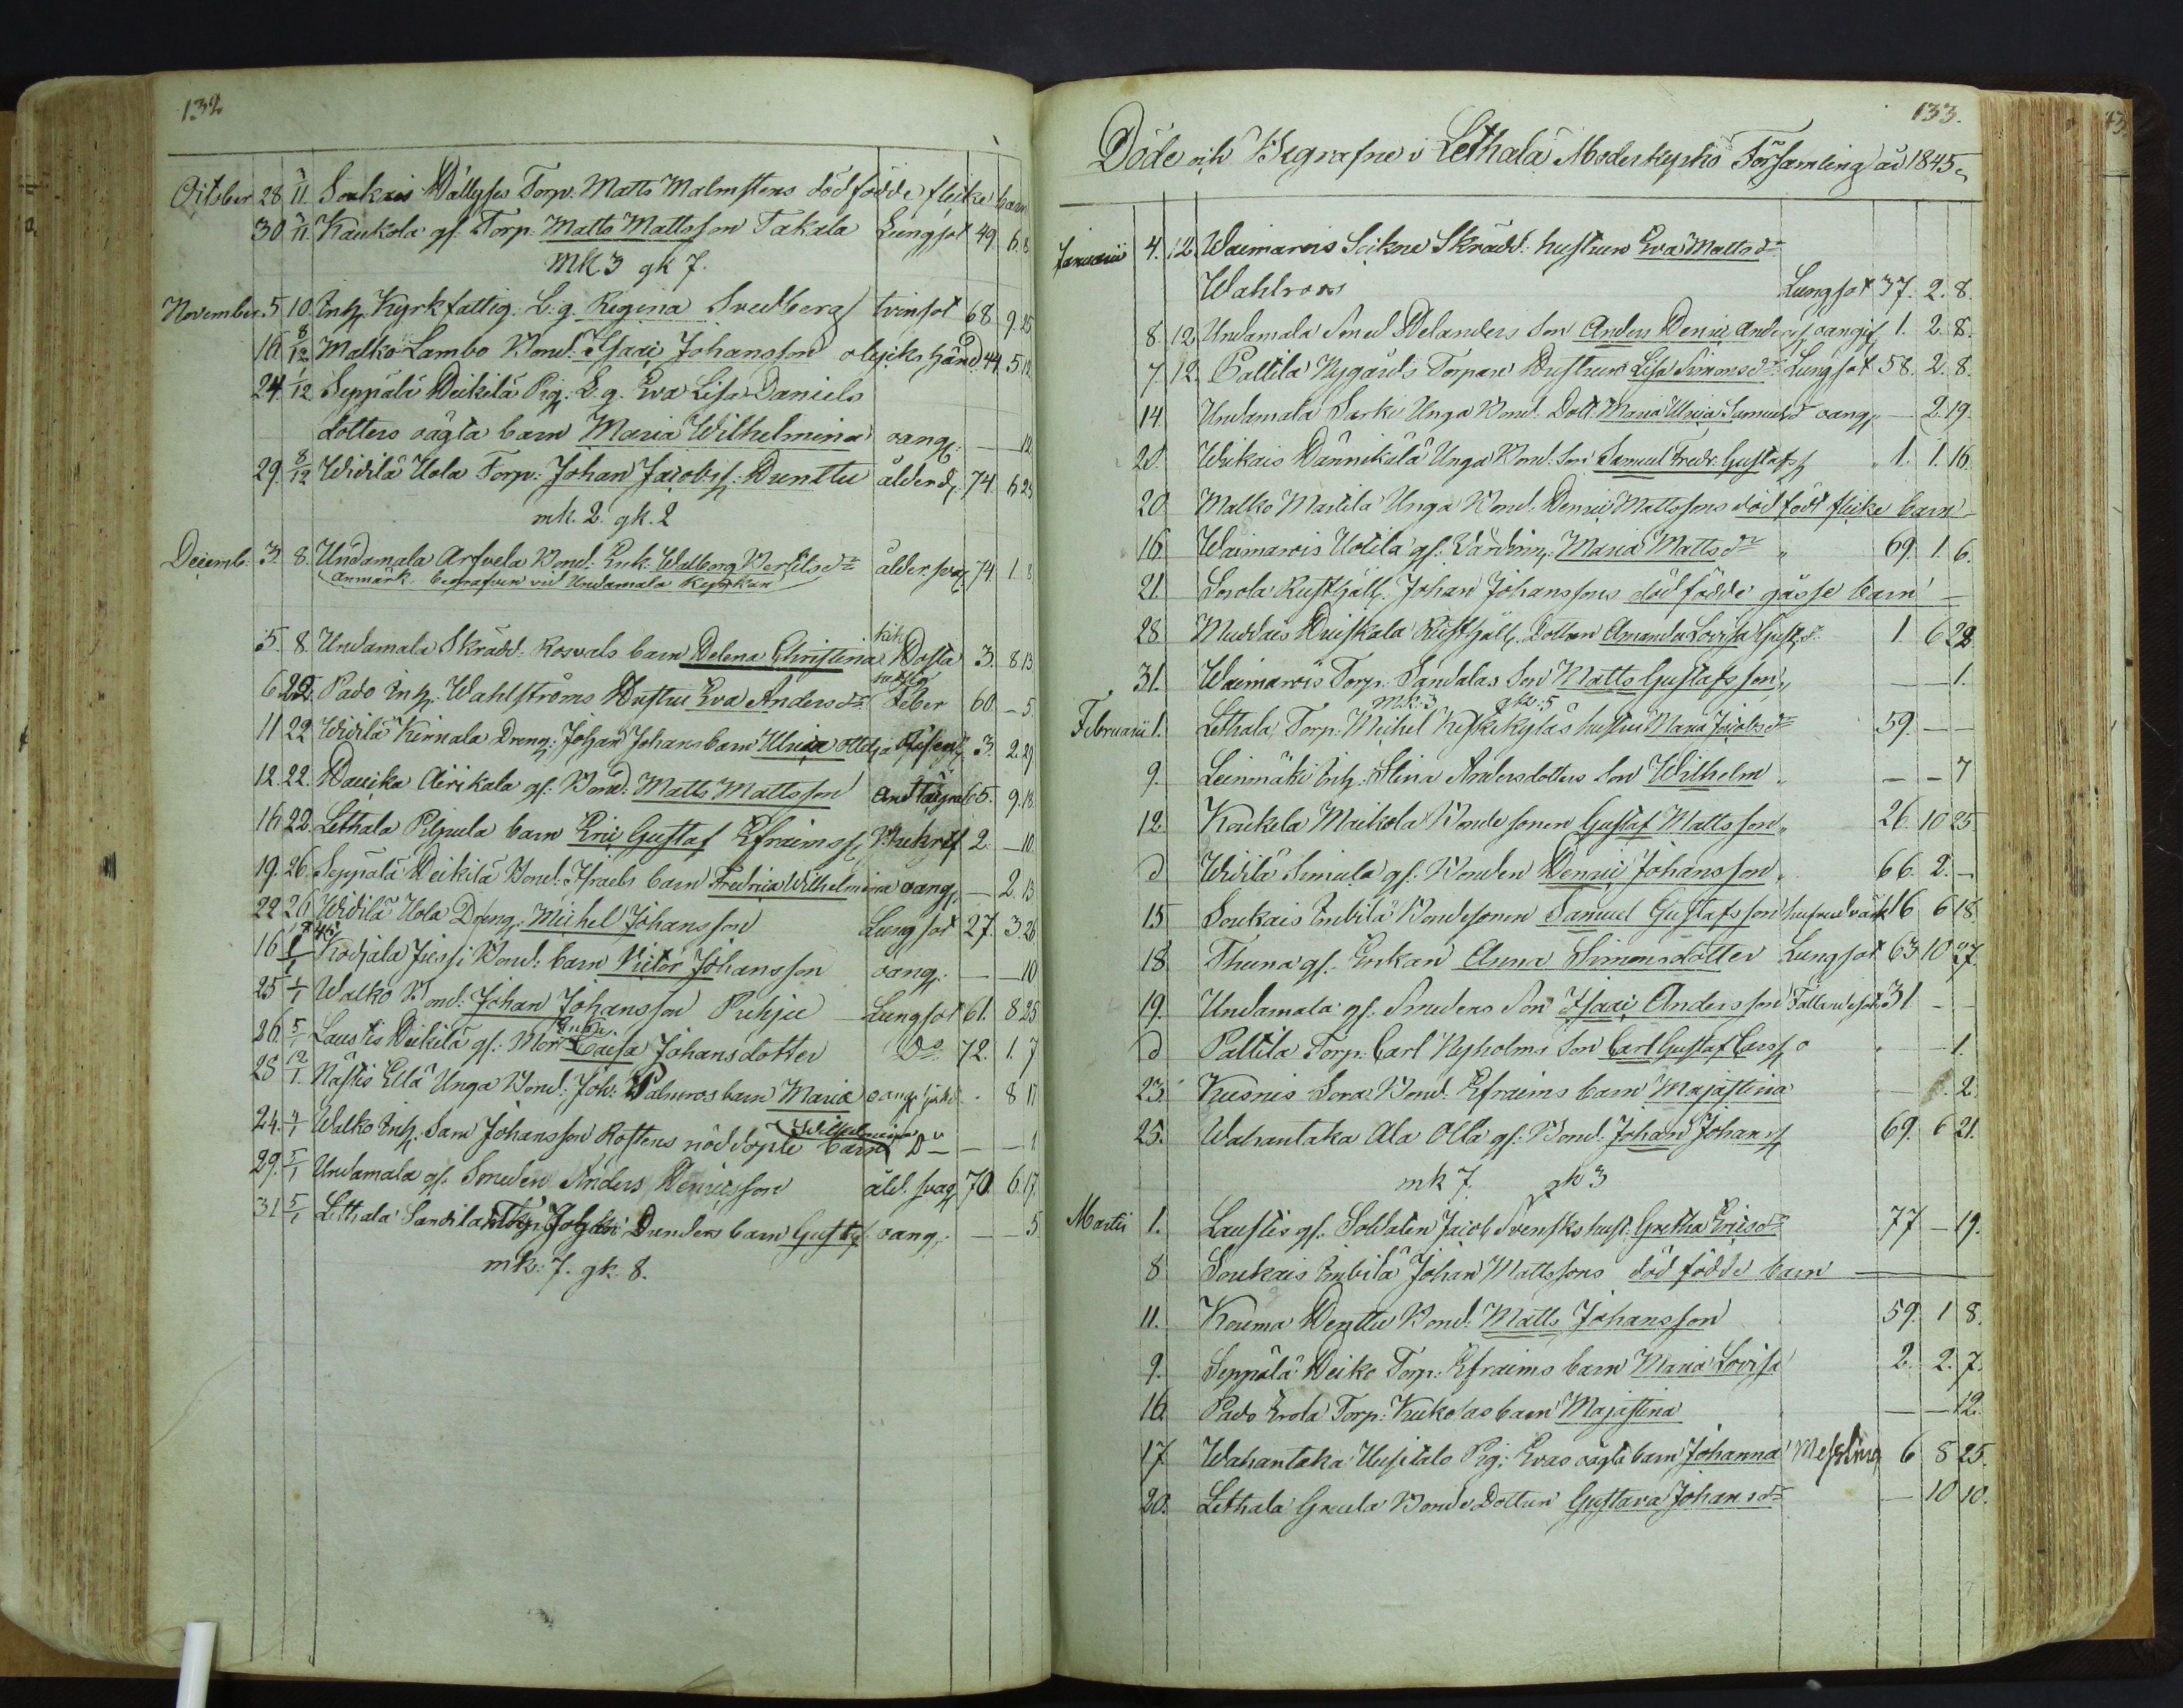 132
October 28 3/11 Soukais Hällyses Torp. Matts Malmstens död födde flicke barn
30 3/11 Kaukola gl. Torp. Matts Mattsson Takala Lungsot 49. 6. 8
mk 3 gk 7.
November 5 10 Inh. Kyrkfattig. L. g. Regina Svedberg tvinsot 68 9. 25
16 8/12 Malko Lambo Bond. Isaac Johansson olycks händ. 44. 5. 12
24 1/12 Seppälä Heikilä Pig. L. g. Eva Lisa Daniels
dotters oägta barn Maria Wilhelmina oang. — 12
29. 8/12 Widilä Uola Torp. Johan Jacobss. Hunttu ålderd. 74. 6 23
mk. 2. gk. 2
Decemb. 3. 8. Undamala Arfvela Bond. Enk. Walborg Bertilsdr ålder. svag. 74. 1. 8
Anmärk. begrafven vid Undamala Kyrkan
5. 8. Undamala Skrädd. Rosvals barn Helena Christina kik Hosta 3. 8 13
6. 22. Pado Inh. Wahlströms Hustru Eva Andersdr Feber 60. — 5.
11 22 Widilä Kinnala Dreng. Johan Johans barn Ulrica 3. 2. 29
12. 22. Hauika Äirikala gl. Bond. Matts Mattsson Andtäpna 65. 9. 18.
16 22. Lethala Pilpula barn Eric Gustaf Efraimss. Bukref 2. — 10.
19. 26. Seppälä Heikilä Bond. Israels barn Fredrica Wilhelmina oang. — 2. 13
22 26 Widilä Uola Dreng. Michel Johansson Lungsot 27. 3. 26
16 1/1 45 Kodjala Jussi Bond. barn Victor Johansson oang. — 10
25 4/1 Walko Bond. Johan Johansson Puhju Lungsot 61. 8 25
26. 5/1 Laustis Heikilä gl. Mor Caisa Johansdotter Do 72. 1. 7
28 12/1. Nästis Ellä Unga Bond. Joh. Palmros barn Maria oang. — 8 11
24. 4/1 Walko Inh. Sam Johansson Rostens nöddöpte barn Wilhelmina Do — — 1
29. 5/1 Undamala gl. Smeden Anders Henricsson åld. svag 70. 6. 17.
31 5/1 Lethala Sandila Torp. Johan Dunders barn Gustaf oang. — — 5.
mk. 7. gk. 8.
133.
Döde och Begrafne i Lethala Moderkyrko Församling år 1845.
Januarii 4. 12. Waimarois Seikne Skrädd. hustrun Eva Mattsdr
Wahlroos Lungsot 37. 2. 8.
8. 12 Undamala Smed Helanders Son Anders Henric oangif. 1. 2. 8.
7. 12. Paltila Nygårds Torpare Hustrun Lisa Simonsdr Lungsot 58. 2. 8.
14. Undamala Sarki Unga Bond. Dott. Maria Ulrica Samuelsd. oang. — 2. 19.
20. Weikais Hännikälä Unga Bond. Son Samuel Fredr. Gustafss. " 1. 1. 16.
20 Malko Martila Unga Bond. Henric Mattssons död född flicke barn
16. Waimarois Uotila gl. Värdinn. Maria Mattsdr " 69. 1. 6.
21. Sorola Rusthåll. Johan Johanssons död födde gosse barn —
28 Muddais Huiskala Rusthåll. Dottren Amanda Lovisa Gust.d. 1. 6 28
31. Waimarois Torp. Sandalas Son Matts Gustafsson " — 1.
mk. 3 gk. 5
Februarii 1. Lethala Torp. Michel Keskikyläs hustru Maria Jacobsdr 59. — —
9. Leinmäki Inh. Stina Andersdotters Son Wilhelm " — — 7
12. Koukela Maikola Bonde sonen Gustaf Mattsson " 26. 10 25.
d Widilä Simula gl. Bonden Henric Johansson " 66. 2. —
15 Soukais Imbilä Bondesonen Samuel Gustafsson hufvudvärk 16 6 18
18 Thuna gl. Enkan Anna Simonsdotter Lungsot 63 10 27.
19. Undamala gl. Smedens Son Isaac Andersson Fallandesot 31 — —
d Paltila Torp. Carl Nyholms Son Carl Gustaf Carlss. " — 1.
23. Kusnis Sora Bond. Efraims barn Majastina — 2.
25. Wahantaka Ala Olla gl. Bond. Johan Johanss. 69. 6 21.
mk 7. gk 3
Martii 1. Laustis gl. Soldaten Jacob Svensks hust. Gretha Ericsdr 77 — 19.
8 Soukais Imbilä Johan Mattssons död födde barn —
11. Kouma Henttu Bond. Matts Johansson 59. 1 8.
9. Seppälä Heiko Torp. Efraims barn Maria Lovisa 2. 2. 7.
16. Pado Erola Torp. Kukolas barn Majastina — — 12.
17 Wahantaka Uusitalo Pig. Evas oägta barn Johanna Messling 6 8 25.
20. Lethala Greula Bonde Dottren Gustava Johansdr — 10 10.